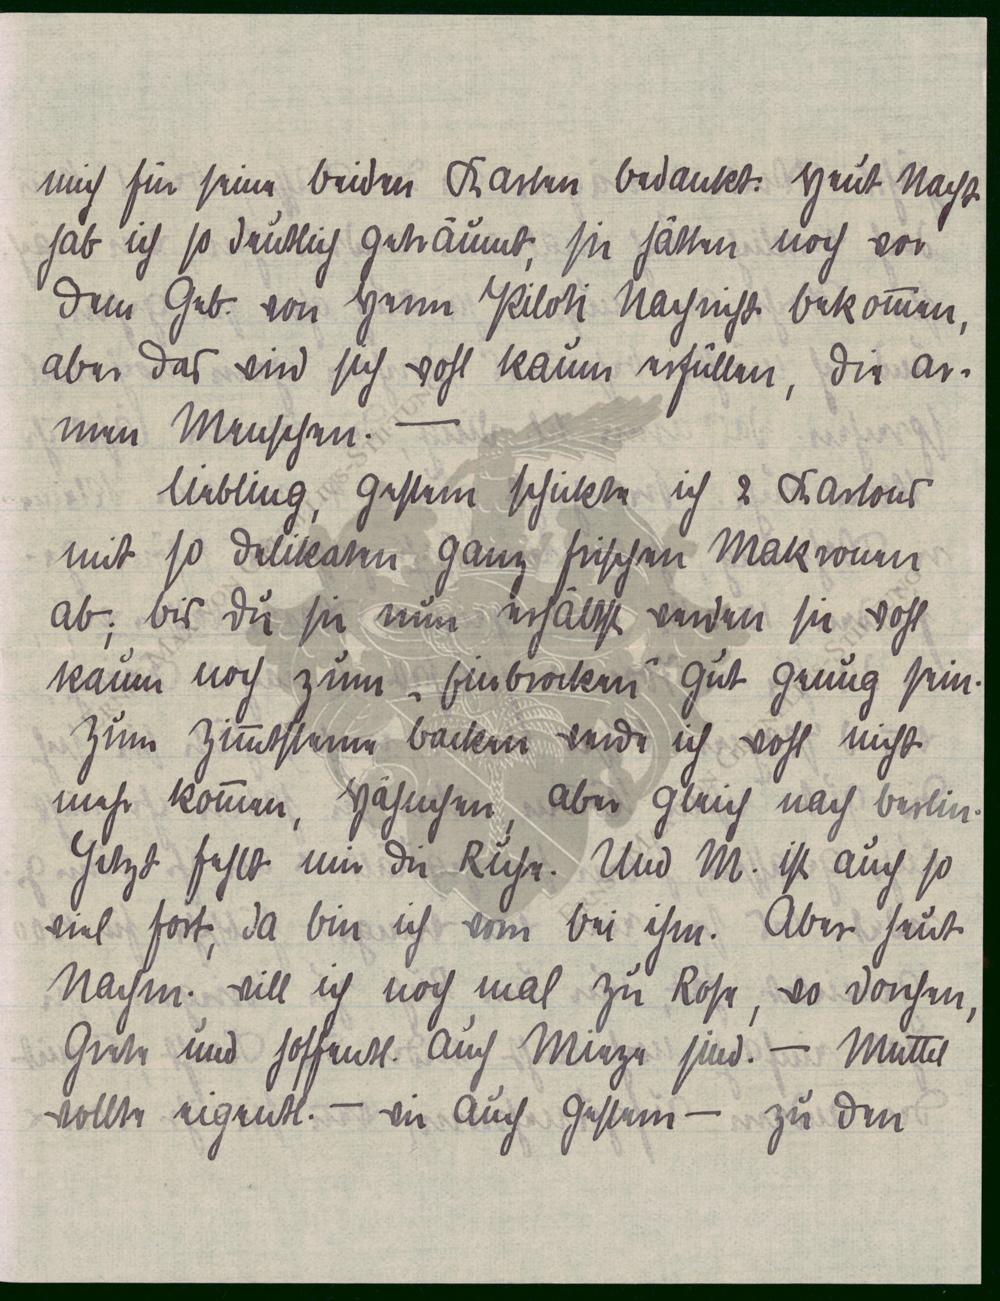 mich für seine beiden Karten bedankt. Heut Nacht
hab ich so deutlich geträumt, sie hätten noch vor
dem Geb. von Herrn Piloti Nachricht bekom̅en,
aber das wird sich wohl kaum erfüllen, die ar-
men Menschen. —
Liebling, gestern schickte ich 2 Kartons
mit so delikaten ganz frischen Makronen
ab; bis du sie nun erhältst werden sie wohl
kaum noch zum „Einbrocken“ gut genug sein.
Zum Zim̅tsterne backen werde ich wohl nicht
mehr kom̅en, Hähnchen, aber gleich nach Berlin.
Jetzt fehlt mir die Ruhe. Und M. ist auch so
viel fort, da bin ich vorn bei ihm. Aber heut
Nachm. will ich noch mal zu Rose, wo Dorchen,
Grete und hoffentl. auch Mieze sind. — Muttel
wollte eigentl. — wie auch gestern — zu den